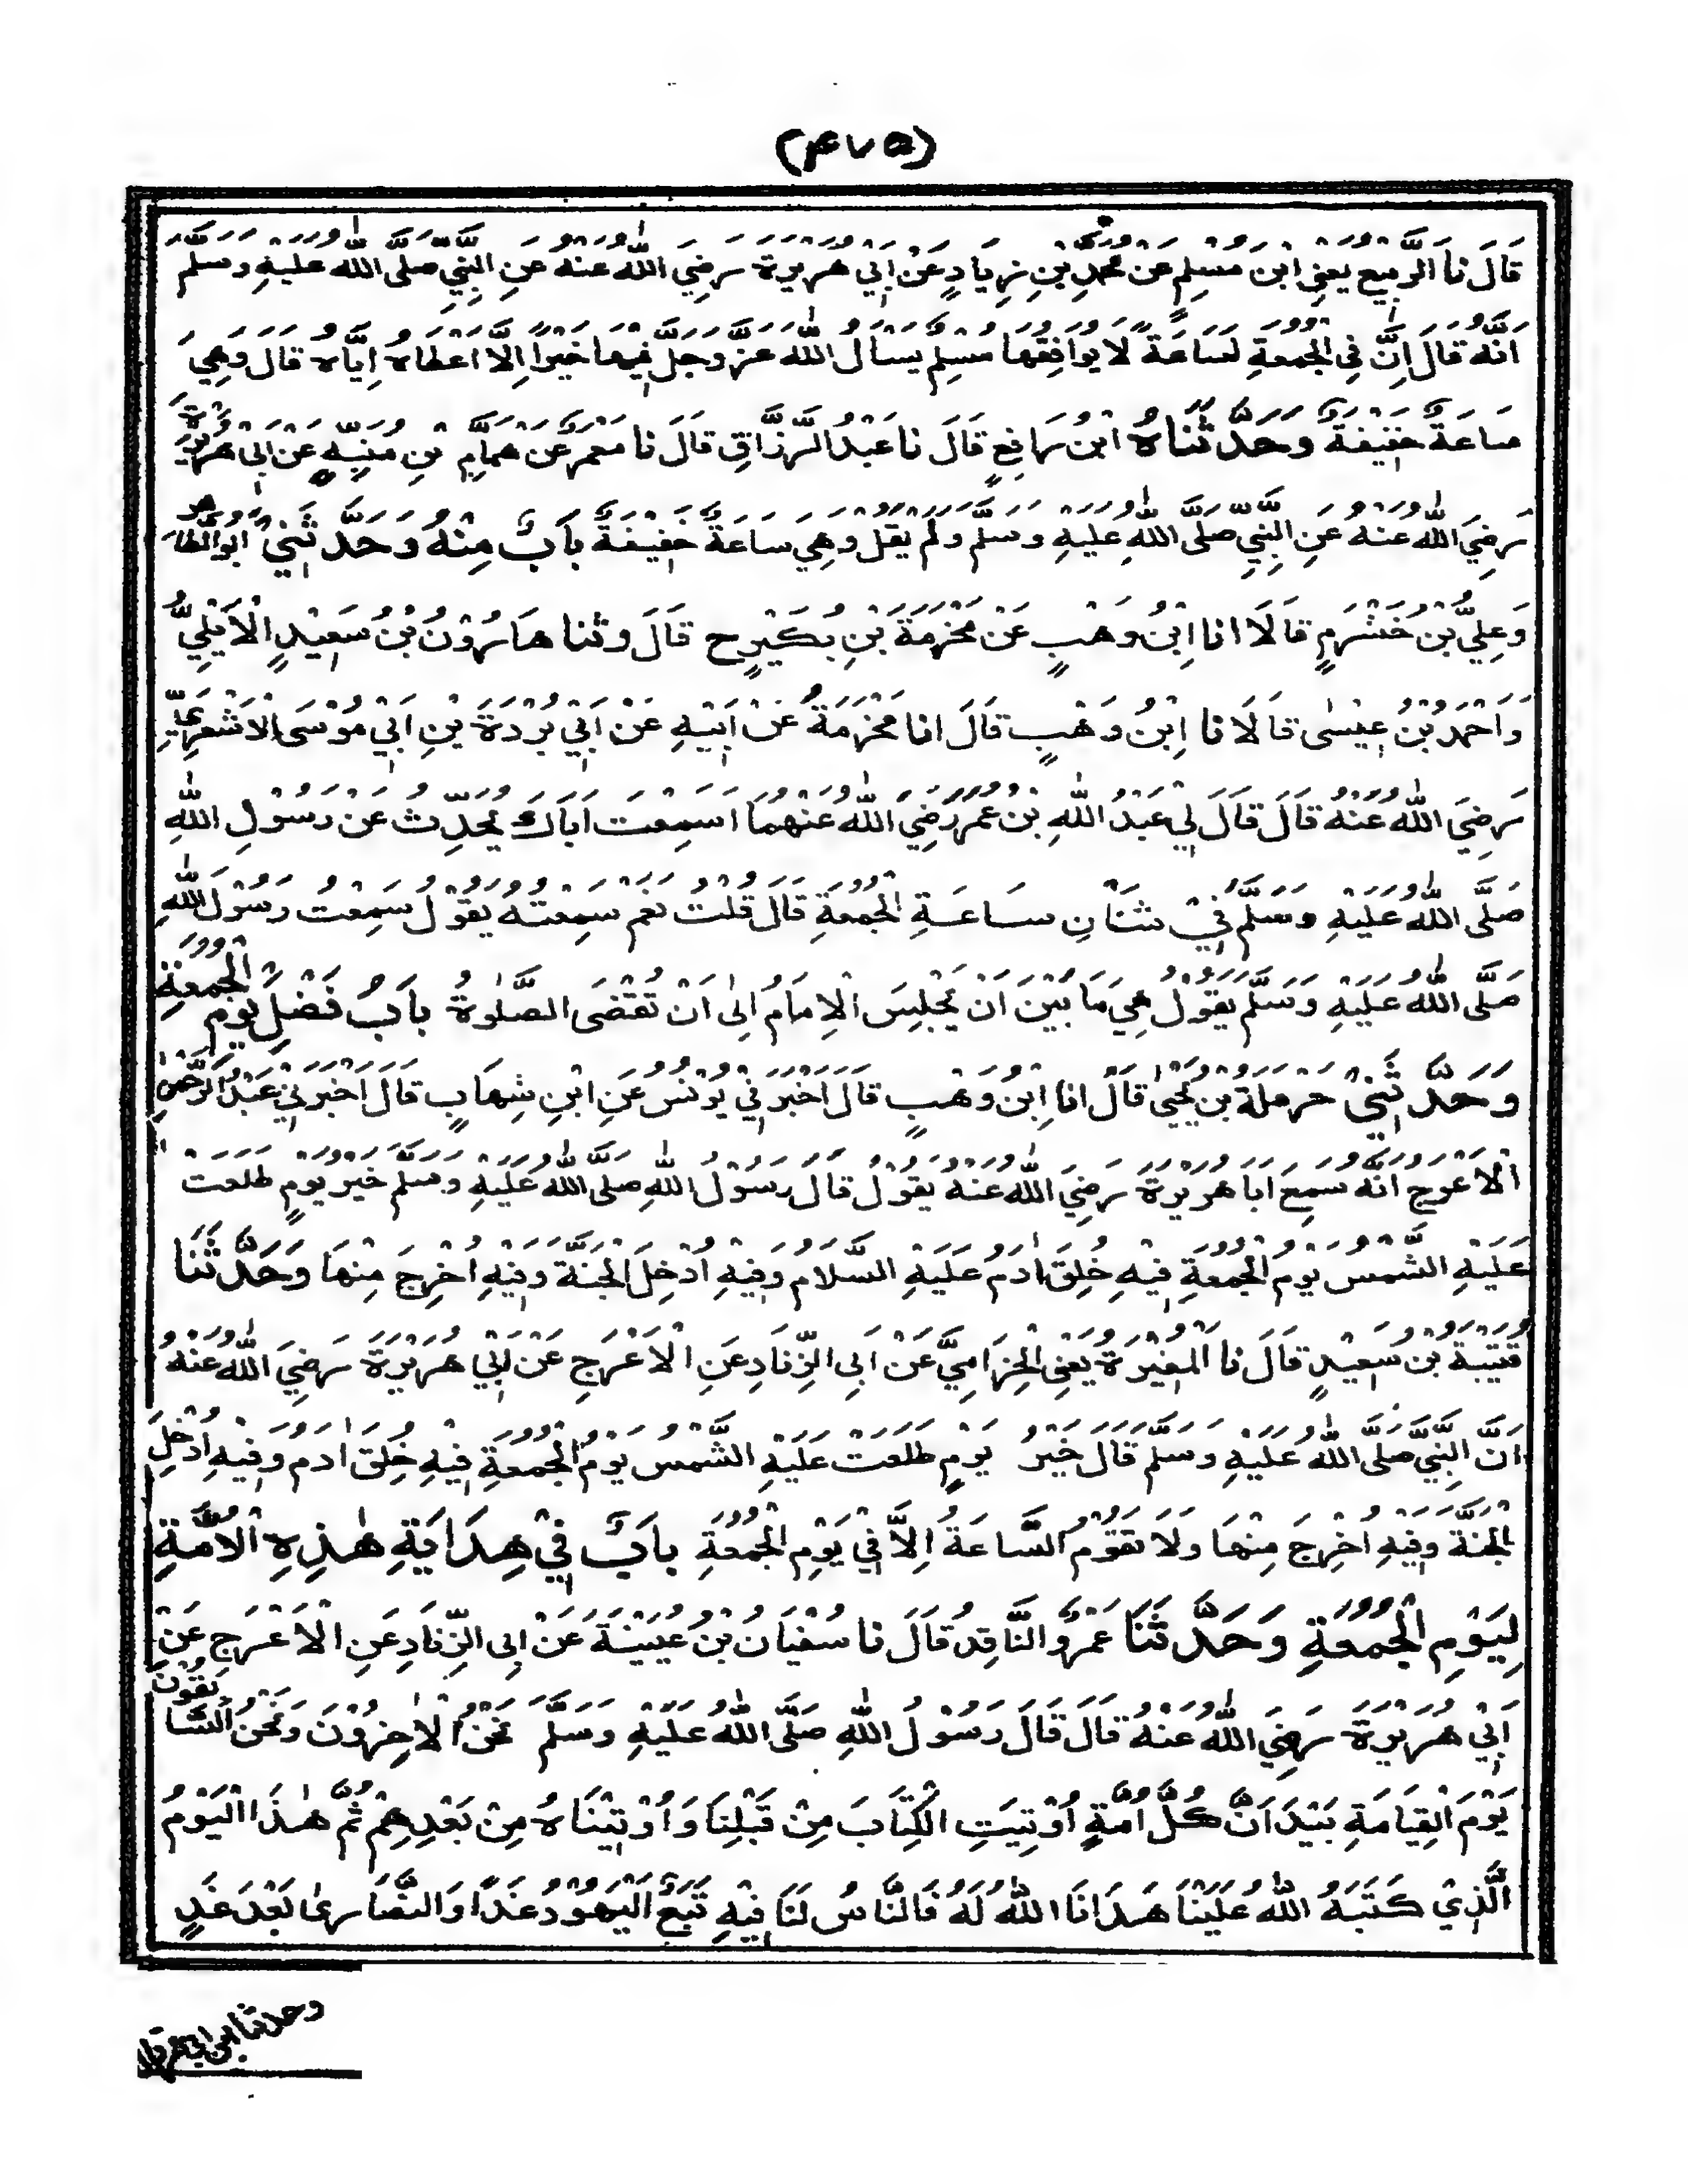 (٤٧٥)
قَالَ نَا الرَّبِيعُ يَعْنِي ابْنَ مُسْلِمٍ عَنْ مُحَمَّدِ بْنِ زِيَادٍ عَنْ أَبِي هُرَيْرَةَ رَضِيَ اللّٰهُ عَنْهُ عَنِ النَّبِيِّ صَلَّى اللّٰهُ عَلَيْهِ وَسَلَّمَ
اَنَّهُ قَالَ اِنَّ فِي الْجُمُعَةِ لَسَاعَةً لَا يُوَافِقُهَا مُسْلِمٌ يَسْأَلُ اللّٰهَ عَزَّ وَجَلَّ فِيهَا خَيْرًا اِلَّا اَعْطَاهُ اِيَّاهُ قَالَ وَهِيَ
سَاعَةٌ خَفِيفَةٌ وَحَدَّثَنَاهُ ابْنُ رَافِعٍ قَالَ نَا عَبْدُ الرَّزَّاقِ قَالَ نَا مَعْمَرٌ عَنْ هَمَّامِ بْنِ مُنَبِّهٍ عَنْ اَبِي هُرَيْرَةَ
رَضِيَ اللّٰهُ عَنْهُ عَنِ النَّبِيِّ صَلَّى اللّٰهُ عَلَيْهِ وَسَلَّمَ وَلَمْ يَقُلْ وَهِيَ سَاعَةٌ خَفِيفَةٌ بَابٌ مِنْهُ وَحَدَّثَنِيْ اَبُو الطَّاهِرِ
وَعَلِيُّ بْنُ خَشْرَمٍ قَالَا انا اِبْنُ وَهْبٍ عَنْ مَخْرَمَةَ بْنِ بُكَيْرٍ ح قَالَ وثنا هَارُوْنُ بْنُ سَعِيْدٍ الْاَيْلِيُّ
وَاَحْمَدُ بْنُ عِيْسٰى قَالَا نا اِبْنُ وَهْبٍ قَالَ انا مَخْرَمَةُ عَنْ اَبِيْهِ عَنْ اَبِيْ بُرْدَةَ بْنِ اَبِيْ مُوْسَى الْاَشْعَرِيِّ
رَضِيَ اللّٰهُ عَنْهُ قَالَ قَالَ لِي عَبْدُ اللّٰهِ بْنُ عُمَرَ رَضِيَ اللّٰهُ عَنْهُمَا اَسَمِعْتَ اَبَاكَ يُحَدِّثُ عَنْ رَسُوْلِ اللّٰهِ
صَلَّى اللّٰهُ عَلَيْهِ وَسَلَّمَ فِيْ شَأْنِ سَاعَةِ الْجُمُعَةِ قَالَ قُلْتُ نَعَمْ سَمِعْتُهُ يَقُوْلُ سَمِعْتُ رَسُوْلَ اللّٰهِ
صَلَّى اللّٰهُ عَلَيْهِ وَسَلَّمَ يَقُوْلُ هِيَ مَا بَيْنَ اَنْ يَجْلِسَ الْاِمَامُ اِلٰى اَنْ تُقْضَى الصَّلٰوةُ بَابُ فَضْلِ يَوْمِ الْجُمُعَةِ
وَحَدَّثَنِيْ حَرْمَلَةُ بْنُ يَحْيٰى قَالَ انا اِبْنُ وَهْبٍ قَالَ اَخْبَرَنِيْ يُوْنُسُ عَنِ ابْنِ شِهَابٍ قَالَ اَخْبَرَنِيْ عَبْدُ الرَّحْمٰنِ
الْاَعْرَجُ اَنَّهُ سَمِعَ اَبَا هُرَيْرَةَ رَضِيَ اللّٰهُ عَنْهُ يَقُوْلُ قَالَ رَسُوْلُ اللّٰهِ صَلَّى اللّٰهُ عَلَيْهِ وَسَلَّمَ خَيْرُ يَوْمٍ طَلَعَتْ
عَلَيْهِ الشَّمْسُ يَوْمُ الْجُمُعَةِ فِيْهِ خُلِقَ اٰدَمُ عَلَيْهِ السَّلَامُ وَفِيْهِ اُدْخِلَ الْجَنَّةَ وَفِيْهِ اُخْرِجَ مِنْهَا وَحَدَّثَنَا
قُتَيْبَةُ بْنُ سَعِيْدٍ قَالَ نا الْمُغِيْرَةُ يَعْنِي الْحِزَامِيَّ عَنْ اَبِي الزِّنَادِ عَنِ الْاَعْرَجِ عَنْ اَبِيْ هُرَيْرَةَ رَضِيَ اللّٰهُ عَنْهُ
اَنَّ النَّبِيَّ صَلَّى اللّٰهُ عَلَيْهِ وَسَلَّمَ قَالَ خَيْرُ يَوْمٍ طَلَعَتْ عَلَيْهِ الشَّمْسُ يَوْمُ الْجُمُعَةِ فِيْهِ خُلِقَ اٰدَمُ وَفِيْهِ اُدْخِلَ
الْجَنَّةَ وَفِيْهِ اُخْرِجَ مِنْهَا وَلَا تَقُوْمُ السَّاعَةُ اِلَّا فِيْ يَوْمِ الْجُمُعَةِ بَابٌ فِيْ هِدَايَةِ هٰذِهِ الْاُمَّةِ
لِيَوْمِ الْجُمُعَةِ وَحَدَّثَنَا عَمْرٌو النَّاقِدُ قَالَ نا سُفْيَانُ بْنُ عُيَيْنَةَ عَنْ اَبِي الزِّنَادِ عَنِ الْاَعْرَجِ عَنْ
اَبِيْ هُرَيْرَةَ رَضِيَ اللّٰهُ عَنْهُ قَالَ قَالَ رَسُوْلُ اللّٰهِ صَلَّى اللّٰهُ عَلَيْهِ وَسَلَّمَ نَحْنُ الْاٰخِرُوْنَ وَنَحْنُ السَّابِقُوْنَ
يَوْمَ الْقِيَامَةِ بَيْدَ اَنَّ كُلَّ اُمَّةٍ اُوْتِيَتِ الْكِتَابَ مِنْ قَبْلِنَا وَاُوْتِيْنَاهُ مِنْ بَعْدِهِمْ ثُمَّ هٰذَا الْيَوْمُ
الَّذِيْ كَتَبَهُ اللّٰهُ عَلَيْنَا هَدَانَا اللّٰهُ لَهُ فَالنَّاسُ لَنَا فِيْهِ تَبَعٌ الْيَهُوْدُ غَدًا وَالنَّصَارىٰ بَعْدَ غَدٍ
وحدثنا ابن ابي عمر قال